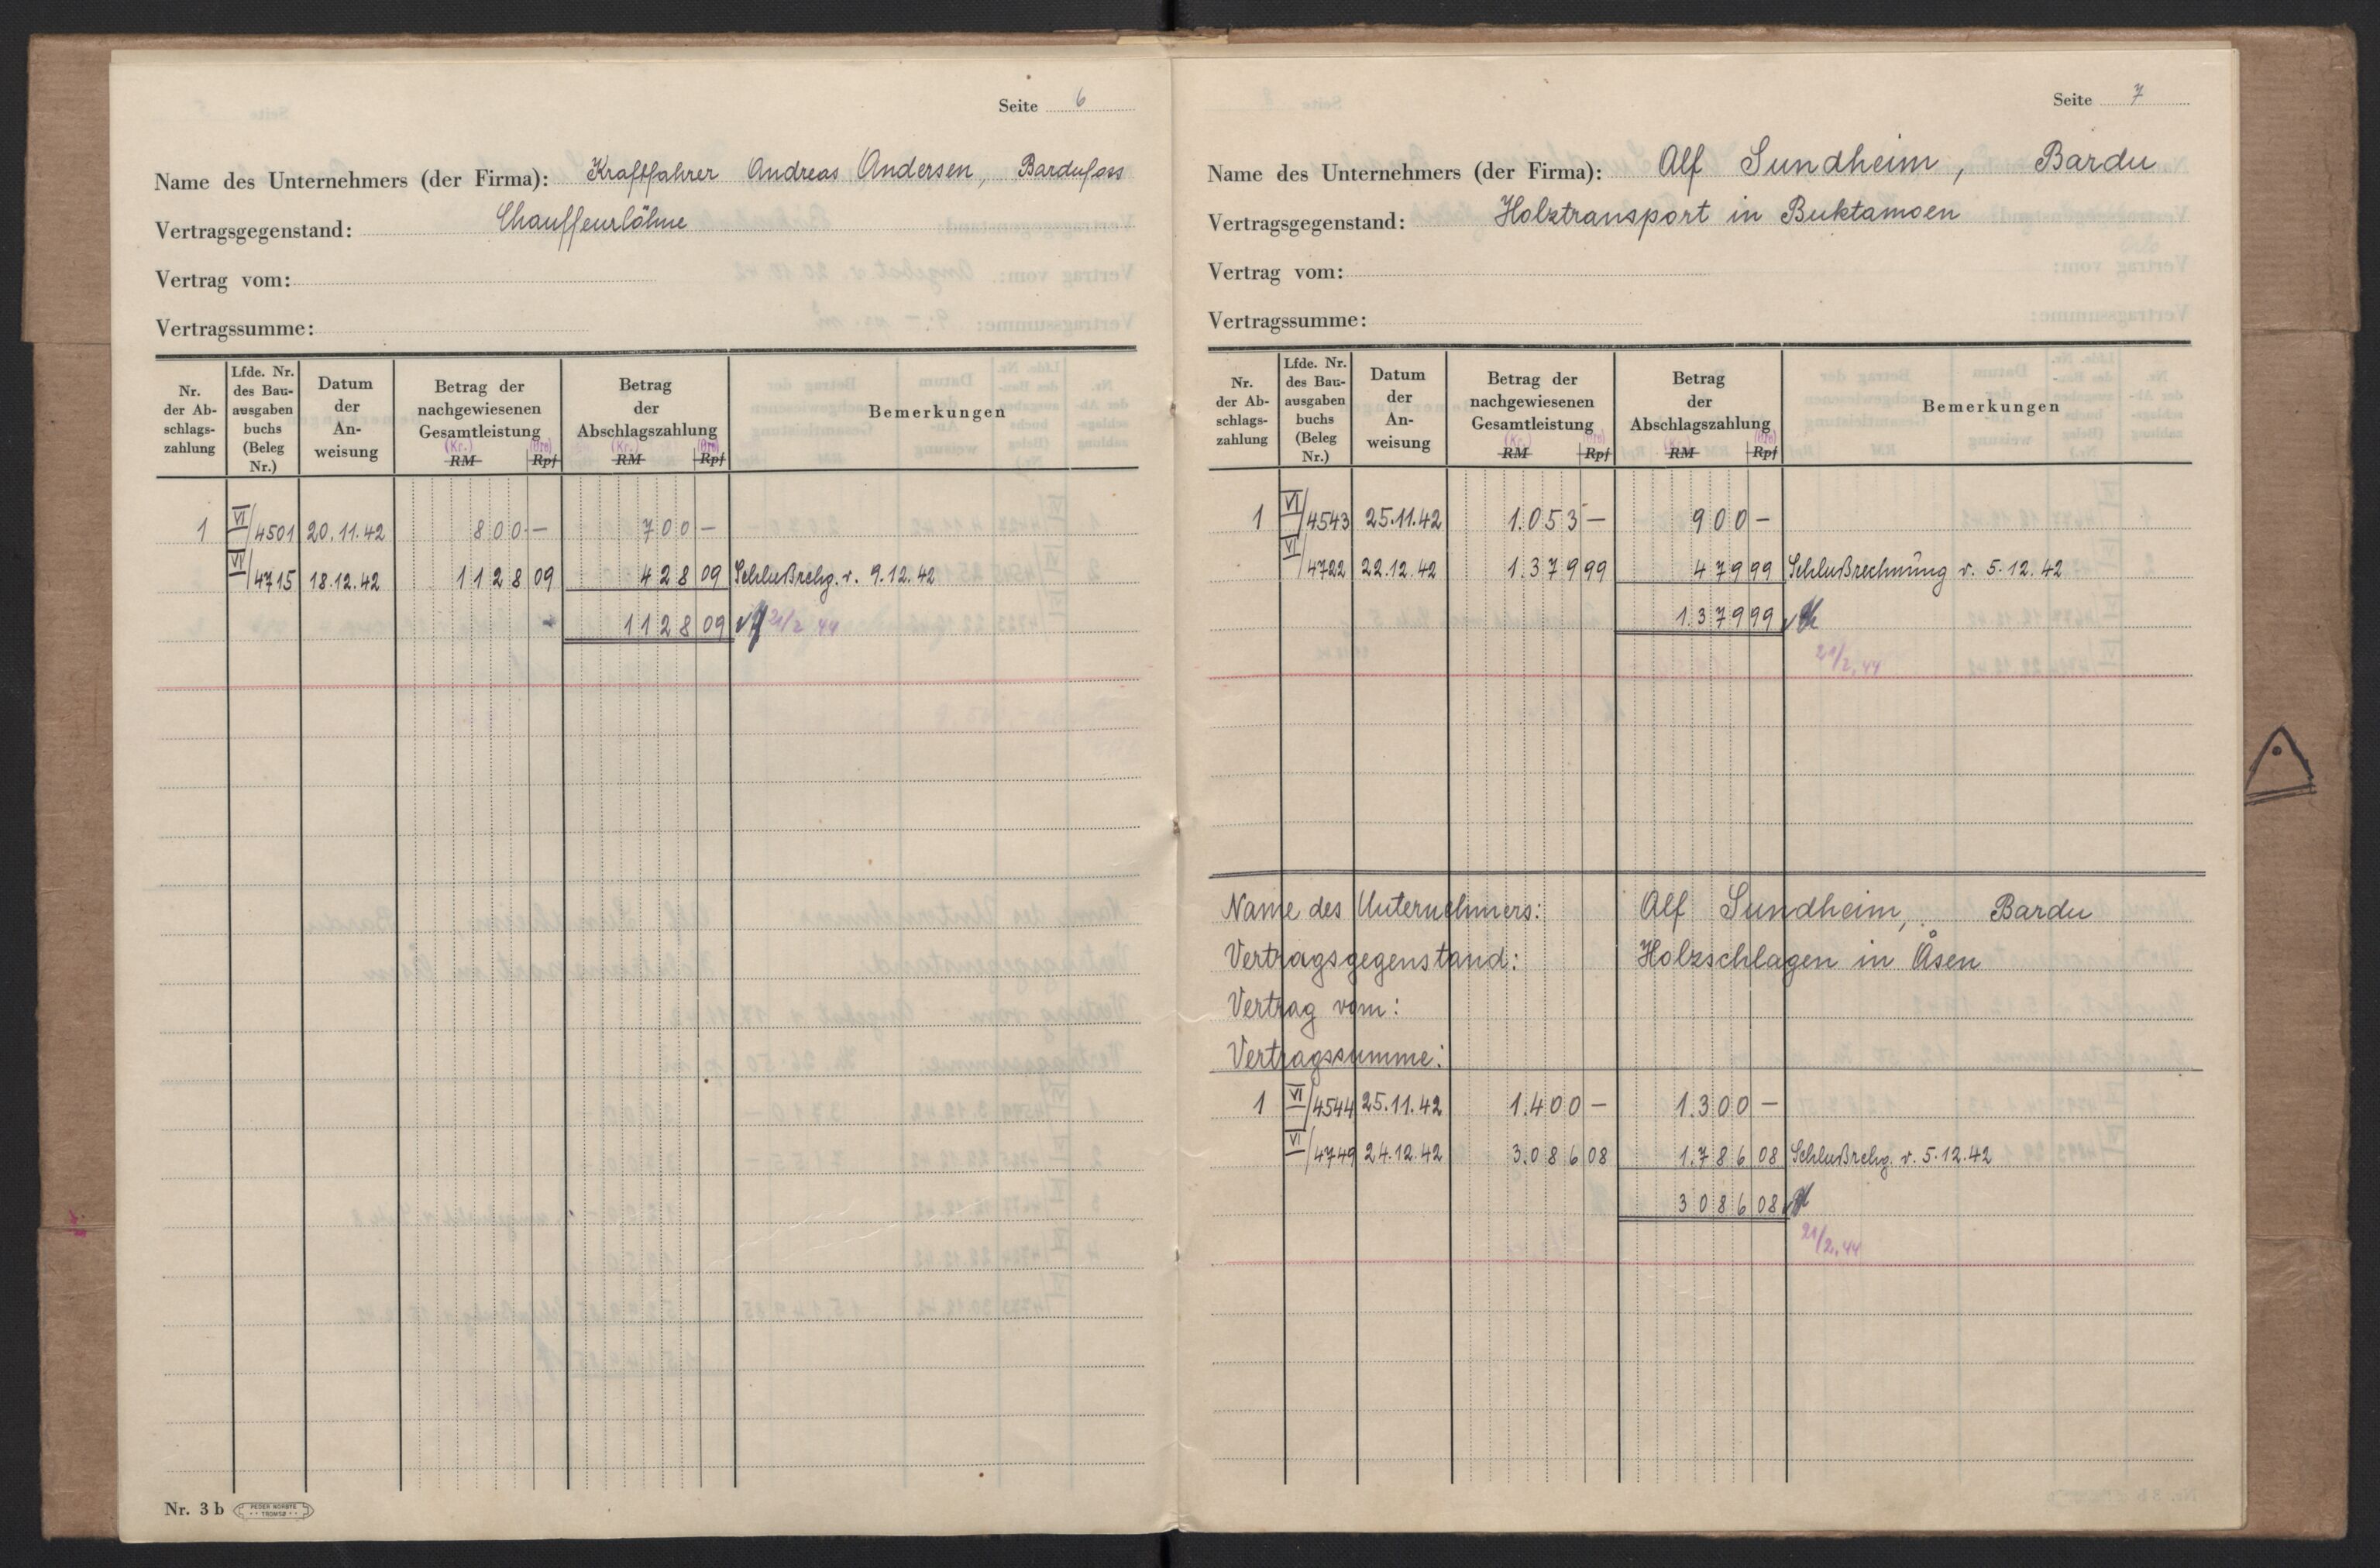 Seite 6
Name des Unternehmers (der Firma): Kraftfahrer Andreas Andersen, Bardufoss
Vertragsgegenstand: Chauffeurlöhne
Vertrag vom:
Vertragssumme:
Nr. der Ab-schlags-zahlung | Lfde. Nr. des Bau-ausgaben buchs (Beleg Nr.) | Datum der An-weisung | Betrag der nachgewiesenen Gesamtleistung (Kr.) RM (Øre) Rpf | Betrag der Abschlagszahlung (Kr.) RM (Øre) Rpf | Bemerkungen
1 | VI/4501 | 20.11.42 | 800 – | 700 –
VI/4715 | 18.12.42 | 1128 09 | 428 09 | Schlußrchg. v. 9.12.42
1128 09 | 21/2 44
Nr. 3 b PEDER NORBYE TROMSØ
Seite 7
Name des Unternehmers (der Firma): Alf Sundheim, Bardu
Vertragsgegenstand: Holztransport in Buktamoen
Vertrag vom:
Vertragssumme:
Nr. der Ab-schlags-zahlung | Lfde. Nr. des Bau-ausgaben buchs (Beleg Nr.) | Datum der An-weisung | Betrag der nachgewiesenen Gesamtleistung (Kr.) RM (Øre) Rpf | Betrag der Abschlagszahlung (Kr.) RM (Øre) Rpf | Bemerkungen
1 | VI/4543 | 25.11.42 | 1.053 – | 900 –
VI/4722 | 22.12.42 | 1.379 99 | 479 99 | Schlußrechnung v. 5.12.42
1.379 99
21/2.44
Name des Unternehmers: Alf Sundheim, Bardu
Vertragsgegenstand: Holzschlagen in Åsen
Vertrag vom:
Vertragssumme:
1 | VI/4544 | 25.11.42 | 1.400 – | 1.300 –
VI/4749 | 24.12.42 | 3.086 08 | 1.786 08 | Schlußrchg. v. 5.12.42
3086 08
21/2.44